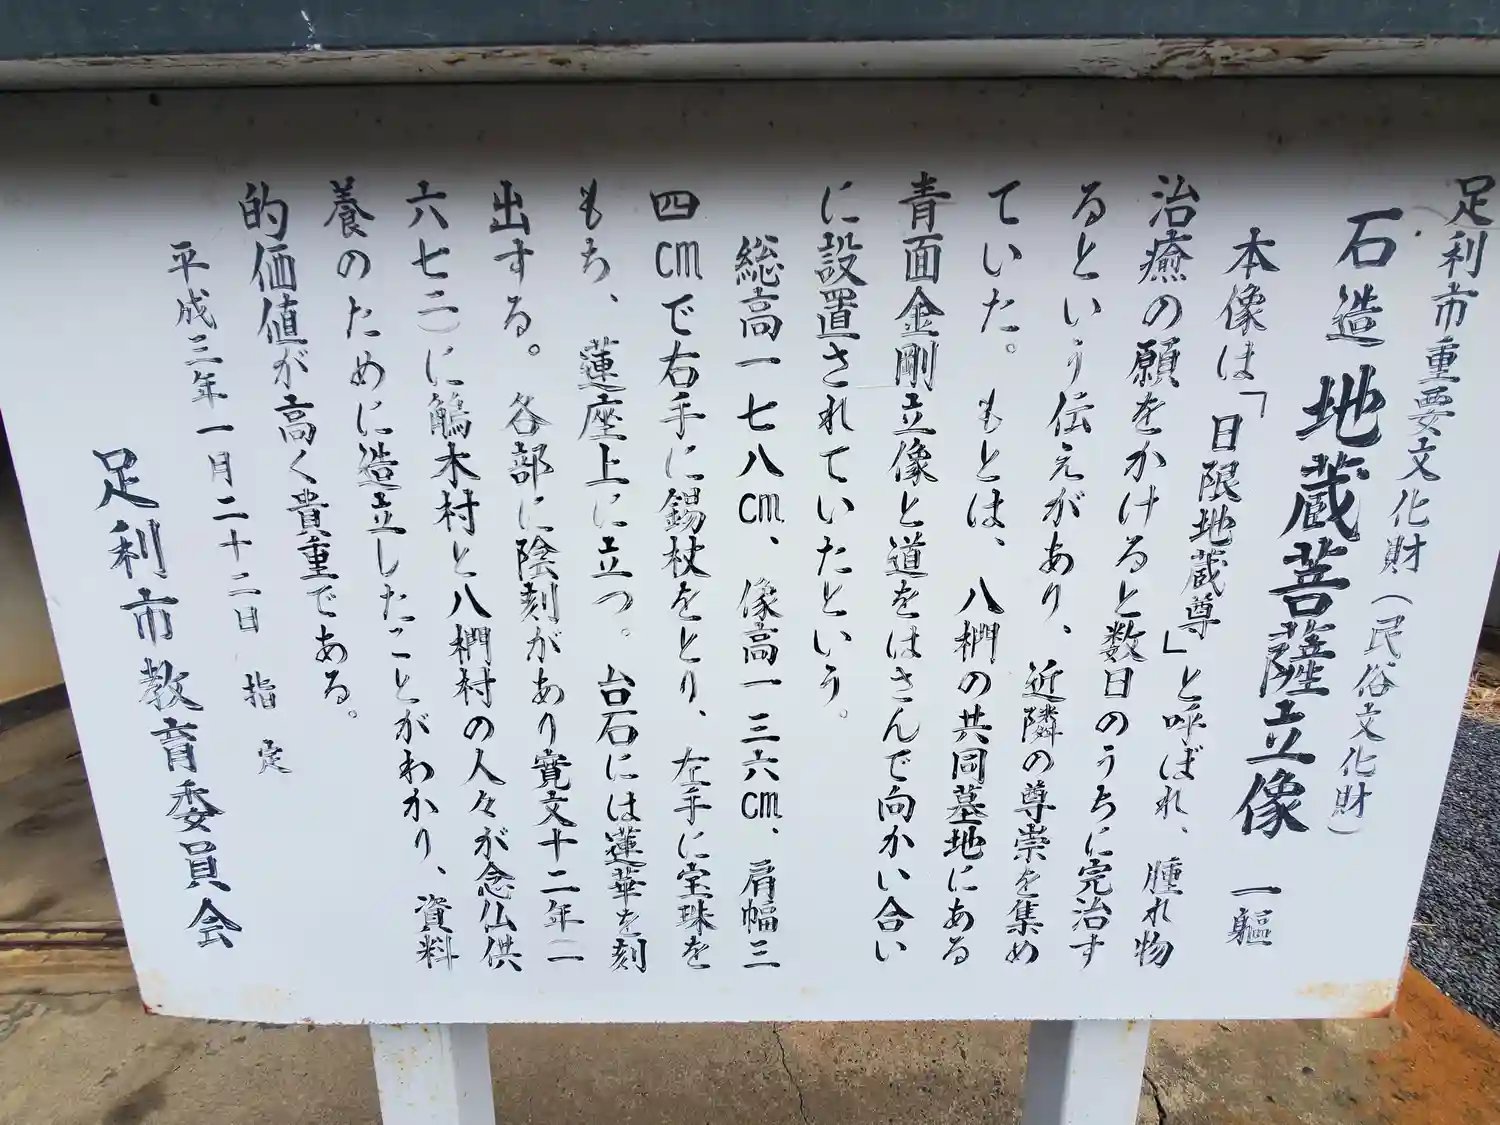 足利市重要文化財（民俗文化財）
石造 地蔵菩薩立像 一軀
本像は「日限地蔵尊」と呼ばれ、腫れ物
治癒の願をかけると数日のうちに完治す
るという伝えがあり、近隣の尊崇を集め
ていた。もとは、八椚の共同墓地にある
青面金剛立像と道をはさんで向かい合い
に設置されていたという。
総高一七八㎝、像高一三六㎝、肩幅三
四㎝で右手に錫杖をとり、左手に宝珠を
もち、蓮座上に立つ。台石には蓮華を刻
出する。各部に陰刻があり寛文十二年（一
六七二）に鵤木村と八椚村の人々が念仏供
養のために造立したことがわかり、資料
的価値が高く貴重である。
平成三年一月二十二日 指定
足利市教育委員会